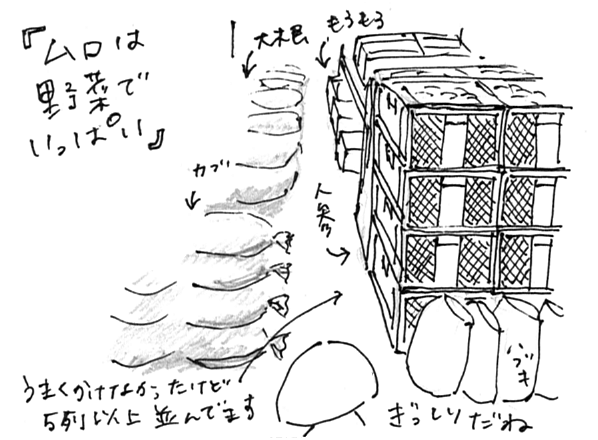 『ムロは
野菜で
いっぱい』
大根
もろもろ
カブ
人参
うまくかけなかったけど
5列以上並んでます
ぎっしりだね